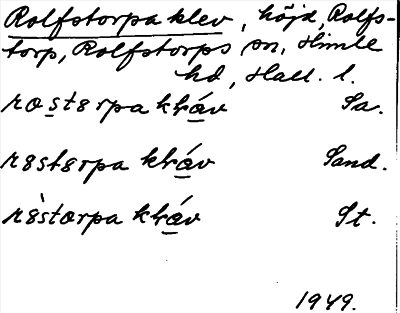 Rolfstorpa klev, höjd, Rolfs-
torp, Rolfstorps sn, Himle
hd, Hall. l.
rostorpa kláv Sa.
røstørpa kláv Sand.
rǿstorpa kláv St.
1949.